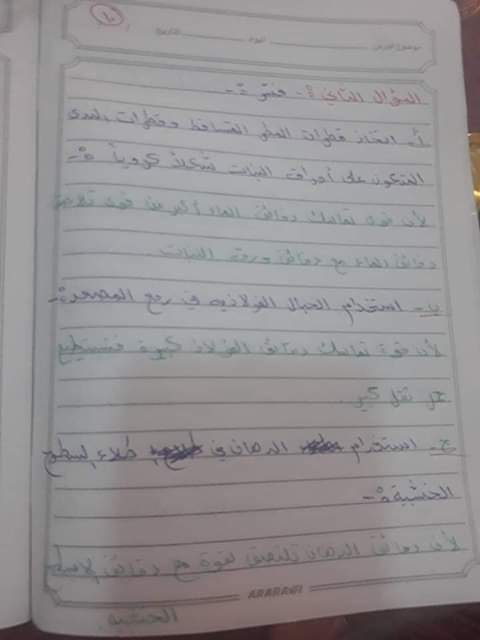 ١٠
موضوع الدرس
اليوم
التاريخ
السؤال الثاني :- فسّر :-
أ- اتخاذ قطرات المطر المتساقط وقطرات الندى
المتكون على أوراق النبات شكلاً كروياً :-
لأن قوة تماسك دقائق الماء أكبر من قوة تلاصق
دقائق الماء مع دقائق ورقة النبات.
ب- استخدام الحبال الفولاذية في رفع المصعد :-
لأن قوة تماسك دقائق الفولاذ كبيرة فتستطيع
حمل ثقل كبير.
ج- استخدام الدهان في طلاء السطوح
الخشبية :-
لأن دقائق الدهان تلتصق بقوة مع دقائق الأسطح
الخشبية
ARABAGI